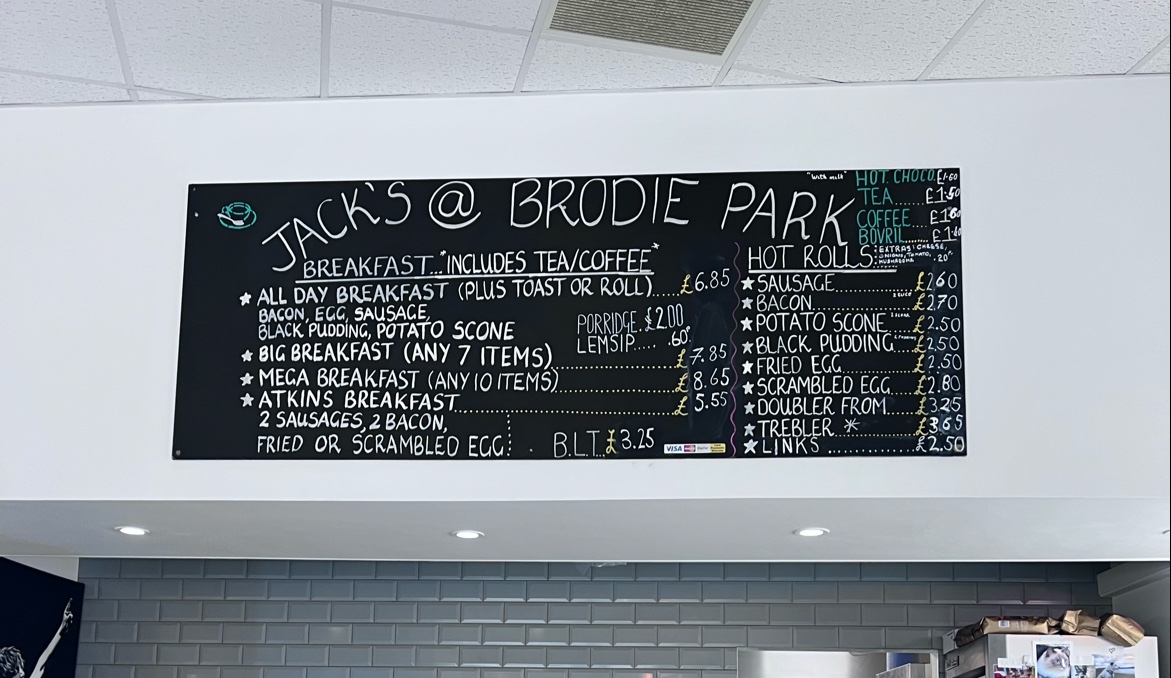 JACK'S @ BRODIE PARK
"With milk" HOT CHOCO. £1.60
TEA....... £1.50
COFFEE....
BOVRIL...... £1.60
BREAKFAST... *INCLUDES TEA/COFFEE*
★ ALL DAY BREAKFAST (PLUS TOAST OR ROLL)..... £6.85
BACON, EGG, SAUSAGE,
BLACK PUDDING, POTATO SCONE
PORRIDGE. £2.00
LEMSIP..... .60
★ BIG BREAKFAST (ANY 7 ITEMS) £7.85
★ MEGA BREAKFAST (ANY 10 ITEMS) £8.65
★ ATKINS BREAKFAST £5.55
2 SAUSAGES, 2 BACON,
FRIED OR SCRAMBLED EGG
B.L.T. £3.25
VISA
HOT ROLLS: EXTRAS: CHEESE,
ONIONS, TOMATO,
MUSHROOMS .20
★ SAUSAGE £2.60
★ BACON £2.70
★ POTATO SCONE £2.50
★ BLACK PUDDING £2.50
★ FRIED EGG £2.50
★ SCRAMBLED EGG £2.80
★ DOUBLER FROM £3.25
★ TREBLER * £3.65
★ LINKS £2.50